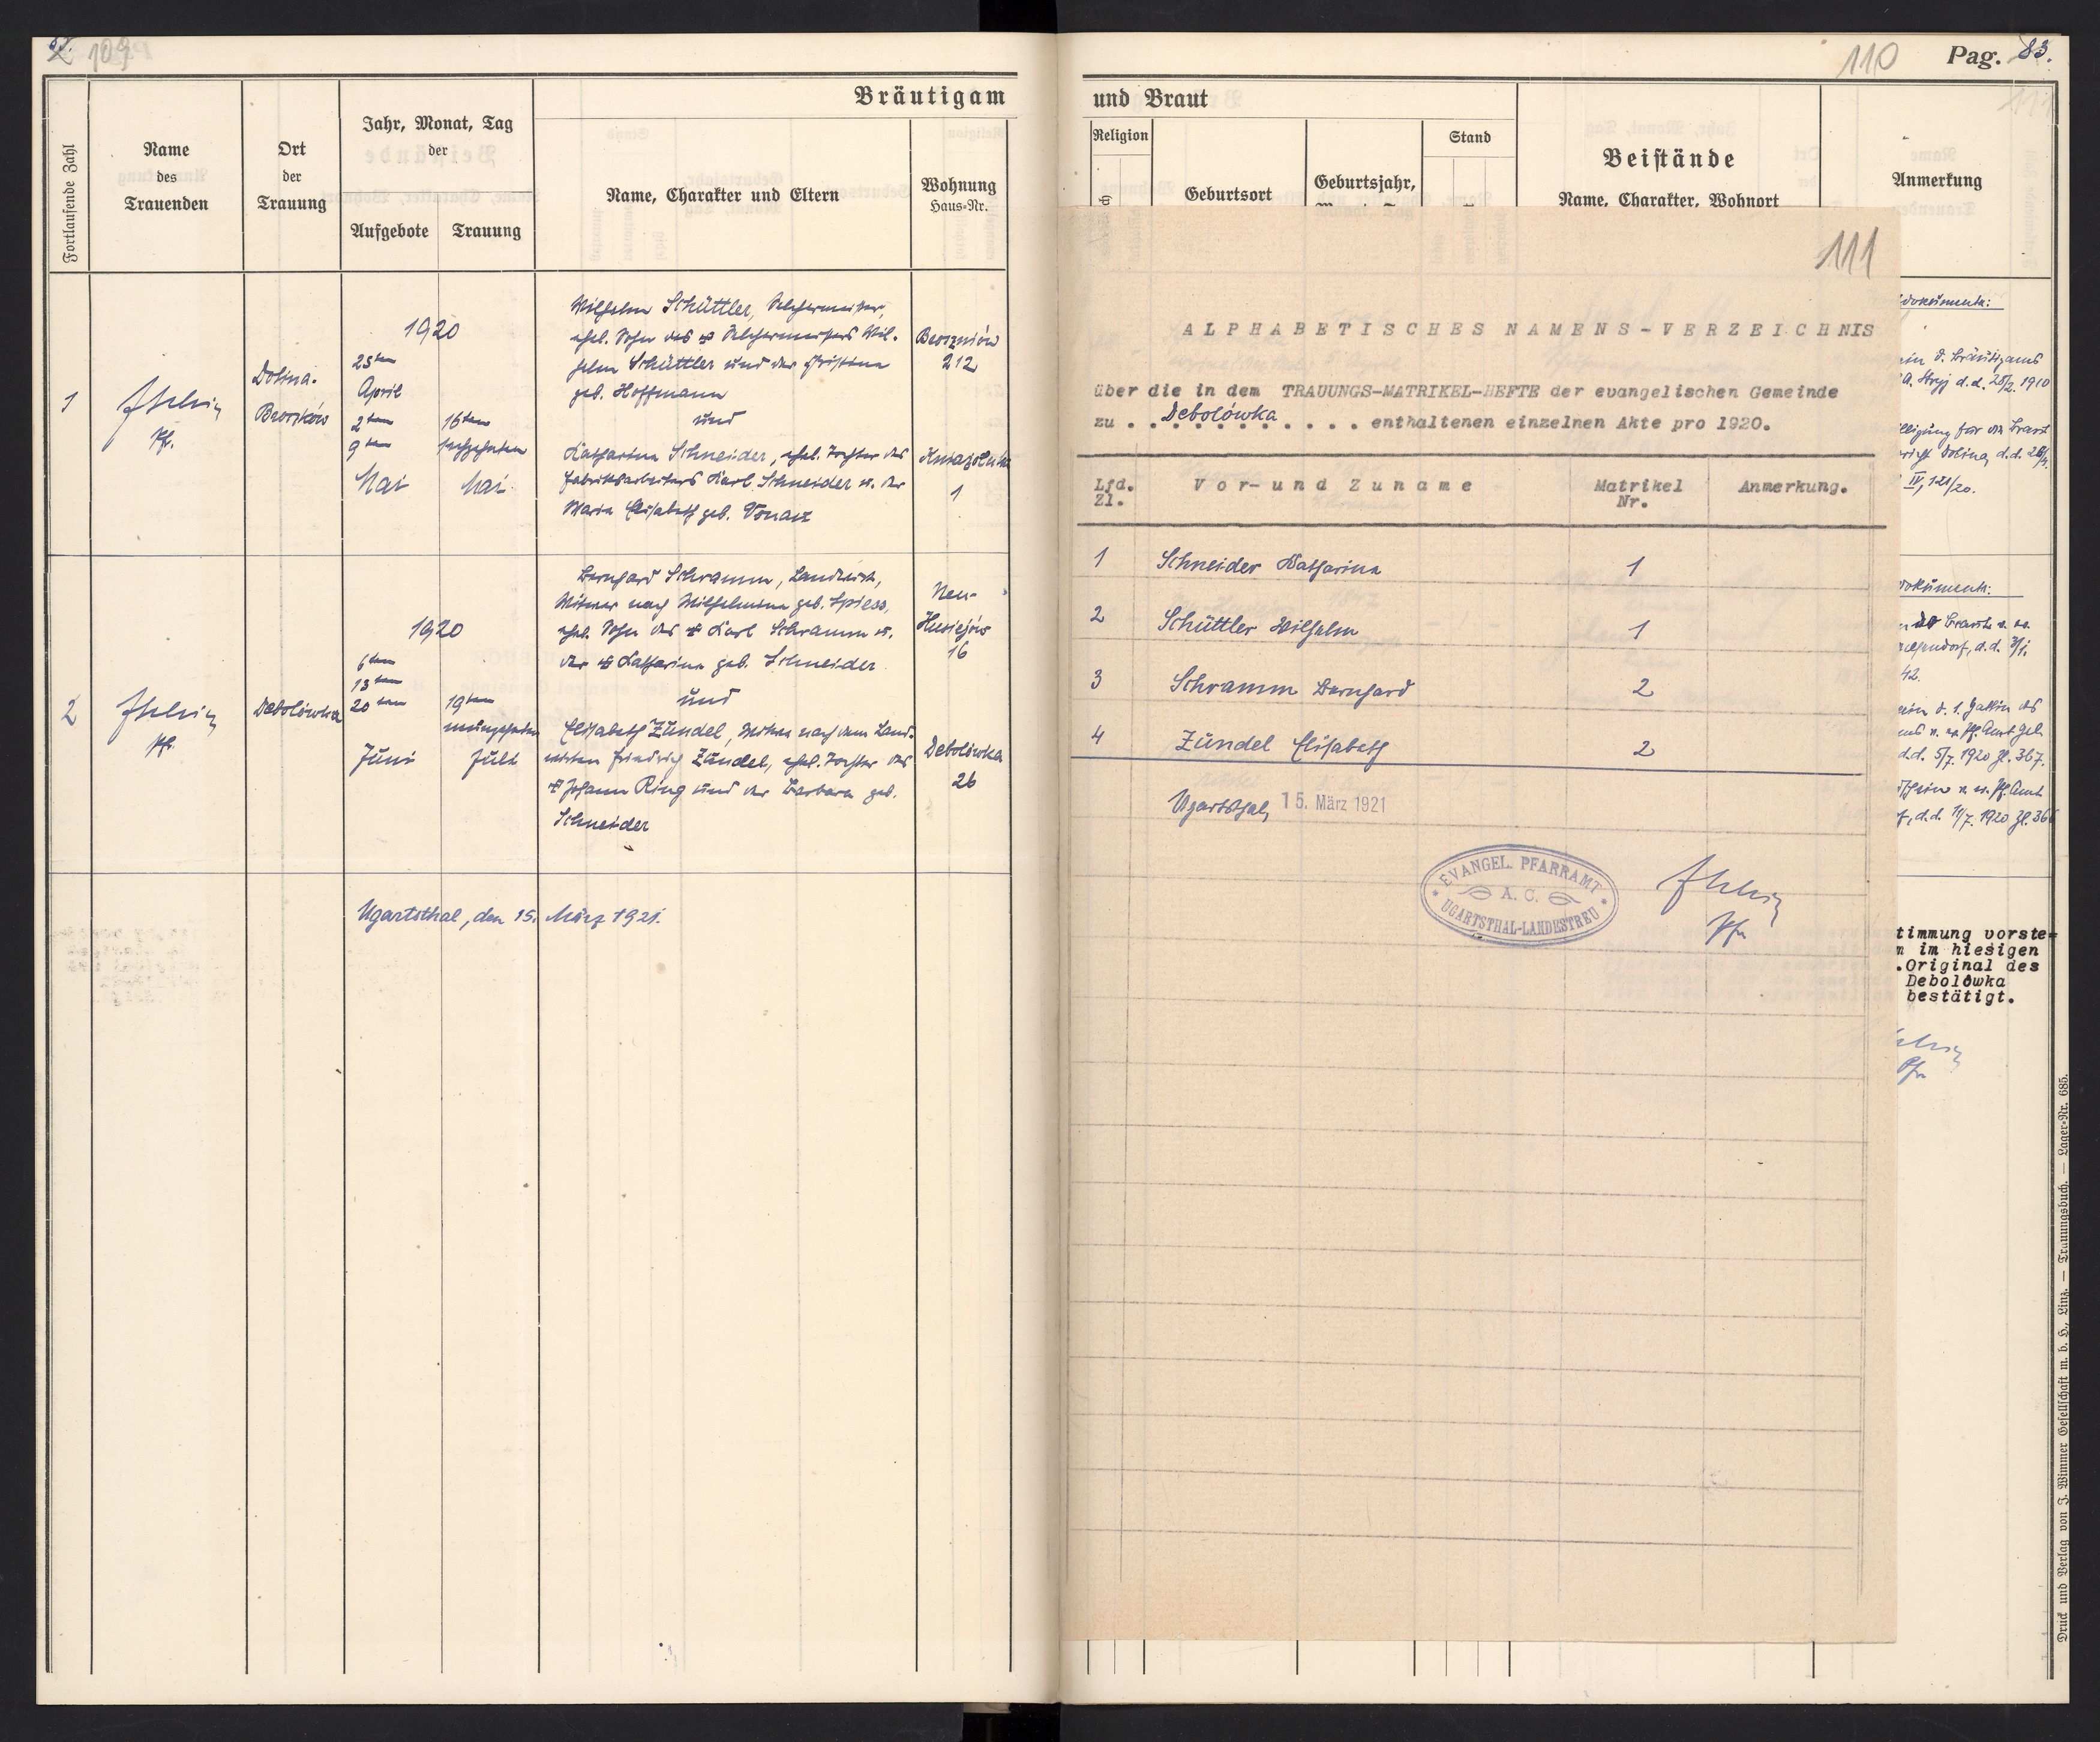 109
Bräutigam
Fortlaufende Zahl
Name
des
Trauenden
Ort
der
Trauung
Jahr, Monat, Tag
der
Aufgebote
Trauung
Name, Charakter und Eltern
Wohnung
Haus-Nr.
1
Pf.
Dolina-
1920
25ten
April
2ten
9ten
Mai
16ten
sechzehnten
Mai
Wilhelm Schüttler,
ehel. Sohn des Wil-
helm Schüttler und der Christine
geb. Hoffmann
und
Katharina Schneider, ehel. Tochter des
Fabriksarbeiters Karl Schneider u. der
Maria Elisabeth geb.
212
1
2
Pf.
Debolówka
1920
6ten
13ten
20ten
Juni
19ten
neunzehnten
Juli
Bernhard Schramm, Landwirt,
Witwer nach Wilhelmina geb. Spiess,
ehel. Sohn des Karl Schramm u.
der Katharina geb. Schneider
und
Elisabeth Zündel, Witwe nach dem Land-
wirten Friedrich Zündel, ehel. Tochter des
Johann Ring und der Barbara geb.
Schneider
Neu-
16
Debolówka
26
Ugartsthal, den 15. März 1921.
110 Pag. 83.
und Braut
Religion
Geburtsort
Geburtsjahr,
Stand
Beistände
Name, Charakter, Wohnort
Anmerkung
111
ALPHABETISCHES NAMENS-VERZEICHNIS
über die in dem TRAUUNGS-MATRIKEL-HEFTE der evangelischen Gemeinde
zu Debolówka enthaltenen einzelnen Akte pro 1920.
Lfd.
Zl.
Vor- und Zuname
Matrikel
Nr.
Anmerkung.
1 Schneider Katharina 1
2 Schüttler Wilhelm 1
3 Schramm Bernhard 2
4 Zündel Elisabeth 2
Ugartsthal, 15. März 1921
EVANGEL. PFARRAMT
A. C.
UGARTSTHAL-LANDESTREU
Pfr
dokumente:
d. Bräutigams
Stryj d.d. 25/2. 1910
für die Braut
Dolina, d.d.
IV, 121/20.
dokumente:
42.
d. 1. Gattin des
d.d. 5/7. 1920 Zl. 367.
d.d. 11/7. 1920 Zl. 366
timmung vorste=
m im hiesigen
.Original des
Debolówka
bestätigt.
Pfr
Druck und Verlag von J. Wimmer Gesellschaft m. b. H., Linz. — Trauungsbuch. — Lager-Nr. 685.